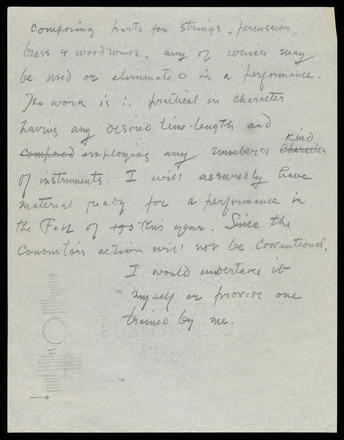 Composing parts for strings, percussion,
brass & woodwinds, any of which may
be used or eliminated in a performance.
The work is : practical in character
having any desired time-length and
kind
composed employing any number & character
of instruments. I will assuredly have
material ready for a performance in
the Fall of this year. Since the
Conductor's action will not be conventional,
I would undertake it
myself or provide one
trained by me.